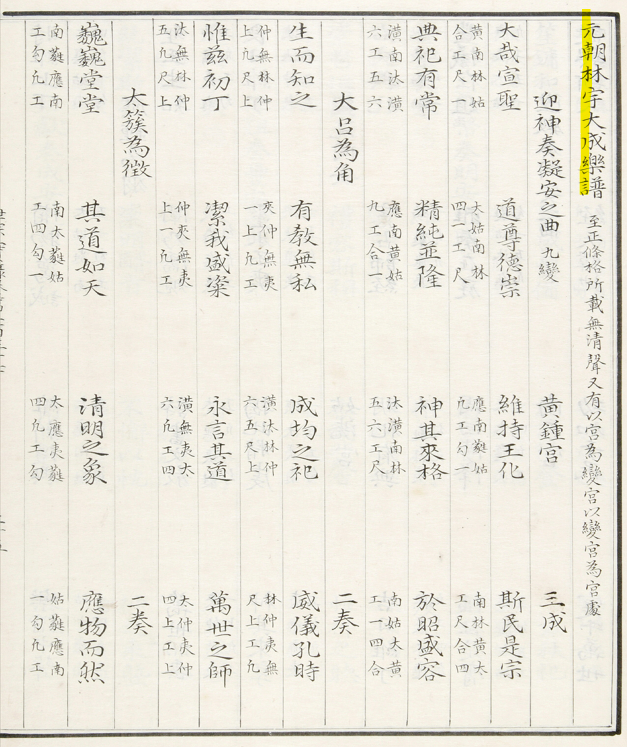 元朝林宇大成樂譜 至正條格所載無清聲又有以宮為變宮以變宮為宮處
迎神奏凝安之曲 九變 黃鍾宮 三成
大哉宣聖 道尊德崇 維持王化 斯民是宗
黃南林姑 太姑南林 應南蕤姑 南林黃太
合工尺一 四一工尺 凢工勾一 工尺合四
典祀有常 精純並隆 神其來格 於昭盛容
潢南汰潢 應南黃姑 汰潢南林 南姑太黃
六工五六 凢工合一 五六工尺 工一四合
大呂為角 二奏
生而知之 有敎無私 成均之祀 威儀孔時
仲無林仲 夾仲無夷 潢汰林仲 林仲夷無
上凢尺上 一上凢工 六五尺上 尺上工凢
惟兹初丁 潔我盛粢 永言其道 萬世之師
汰無林仲 仲夾無夷 潢無夷太 太仲夷仲
五凢尺上 上一凢工 六凢工四 四上工上
太簇為徵 二奏
巍巍堂堂 其道如天 清明之象 應物而然
南蕤應南 南太蕤姑 太應夷蕤 姑蕤應南
工勾凢工 工四勾一 四凢工勾 一勾凢工